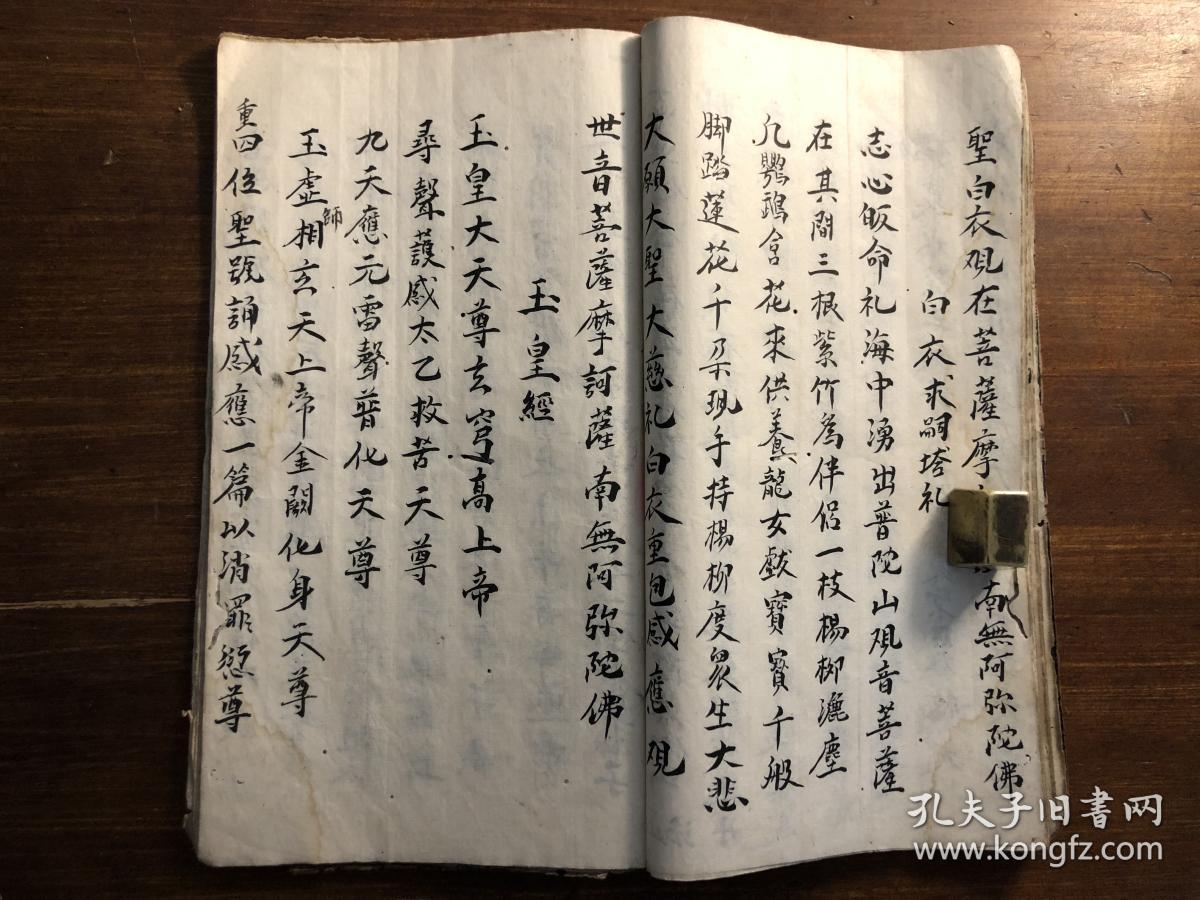 聖白衣观在菩薩摩南無阿弥陀佛
白衣求嗣塔礼
志心皈命礼海中湧出普陀山观音菩薩
在其間三根紫竹為伴侣一枝楊柳灑塵
凡鸚鵡含花來供養龍女献寶寶千般
脚踏蓮花千朶現手持楊柳度衆生大悲
大願大聖大慈礼白衣重包感應观
世音菩薩摩訶薩南無阿弥陀佛
玉皇經
玉皇大天尊玄穹高上帝
尋聲護感太乙救苦天尊
九天應元雷聲普化天尊
玉虛師相玄天上帝金闕化身天尊
重四位聖號誦感應一篇以消罪愆尊
孔夫子旧书网
www.kongfz.com